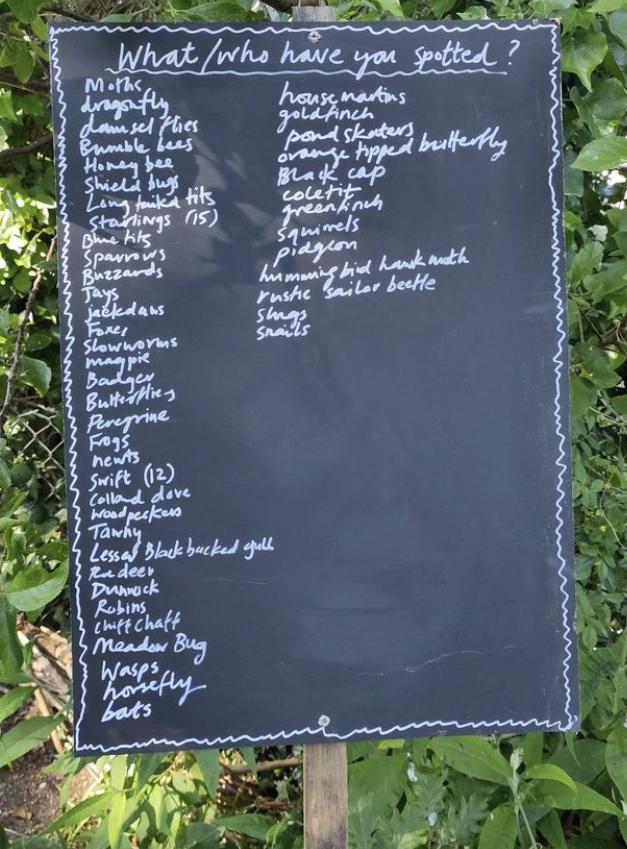 What/who have you spotted?
Moths
dragonfly
damselflies
Bumble bees
Honey bee
Shield bugs
Long tailed tits
Starlings (15)
Blue tits
Sparrows
Buzzards
Jays
jackdaws
Foxes
Slowworms
magpie
Badger
Butterflies
Peregrine
Frogs
newts
Swift (12)
Collard dove
woodpeckers
Tawny
Lesser Blackbacked gull
Dunnock
Robins
Chiff Chaff
Meadow Bug
Wasps
horsefly
bats
house martins
goldfinch
pond skaters
orange tipped butterfly
Black cap
coletit
greenfinch
Squirrels
pidgeon
hummingbird hawk moth
rustic sailor beetle
slugs
snails